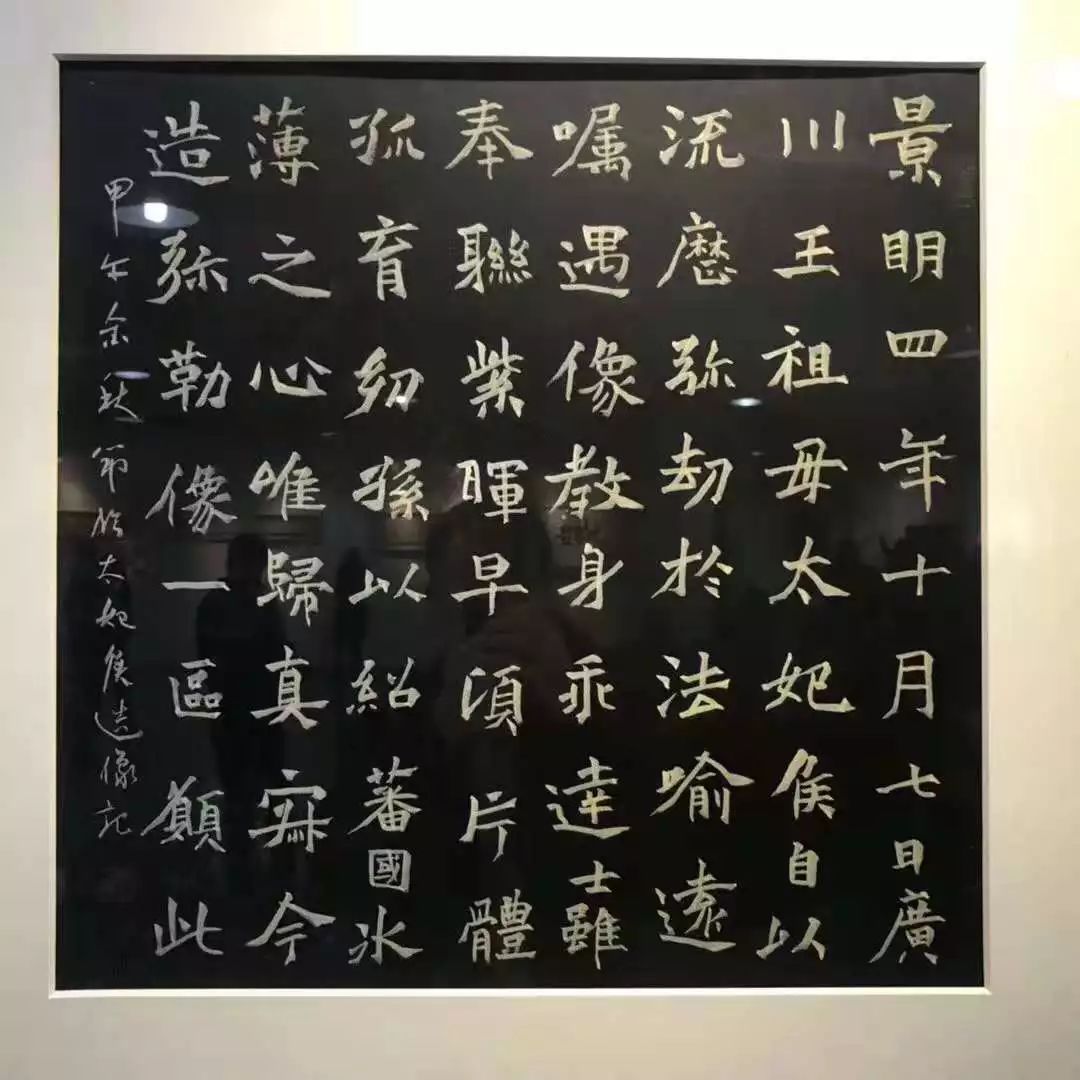 景明四年十月七日廣
川王祖母太妃侯自以
流歷弥劫於法喻遠
嘱遇像教身乖達士雖
奉聯紫暉早頃片體
孤育幼孫以紹蕃國冰
薄之心唯歸真寂今
造弥勒像一區願此
甲午余秋節臨太妃侯造像記